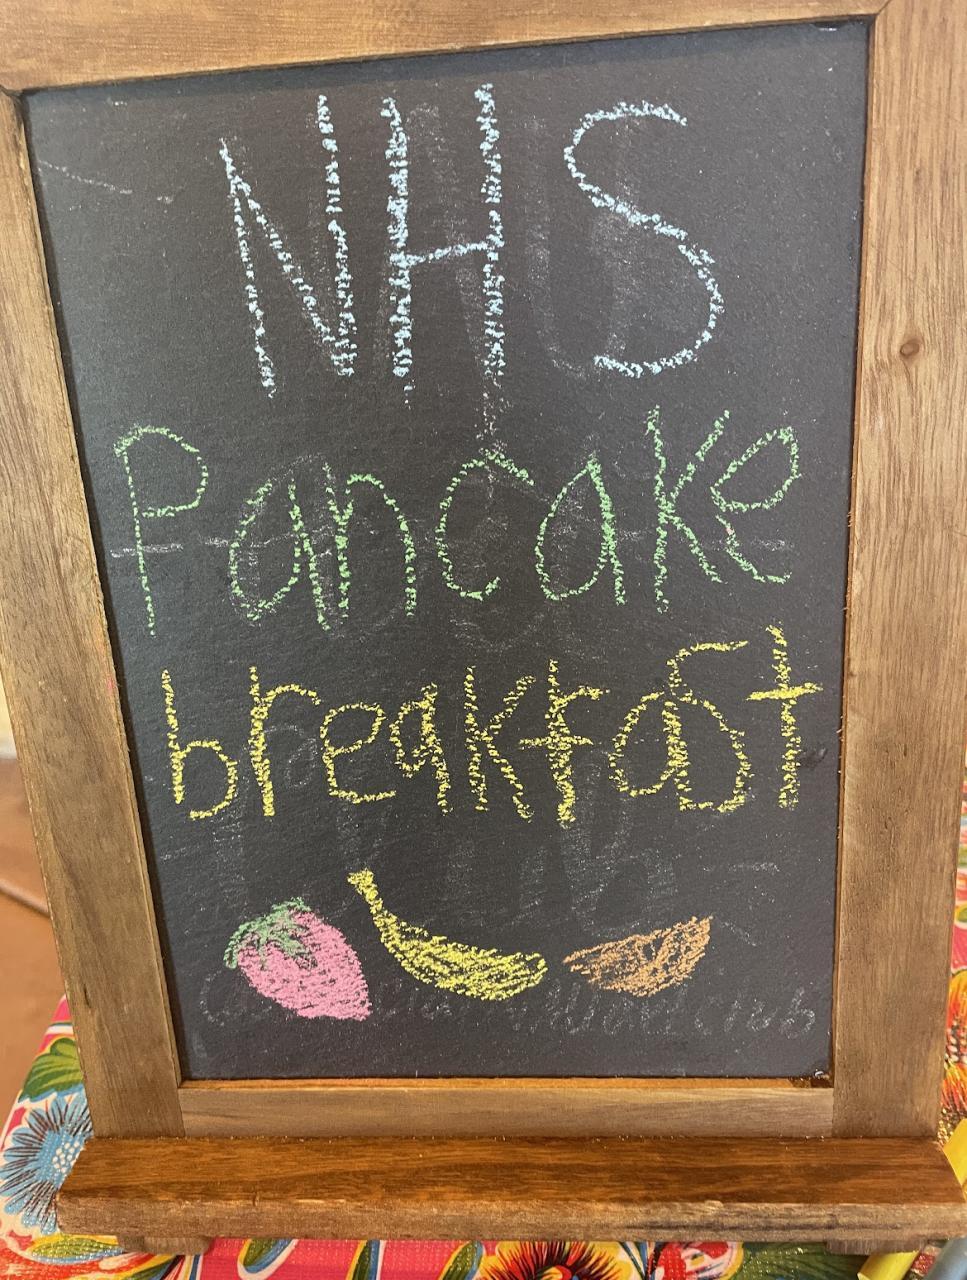 NHS
Pancake
breakfast